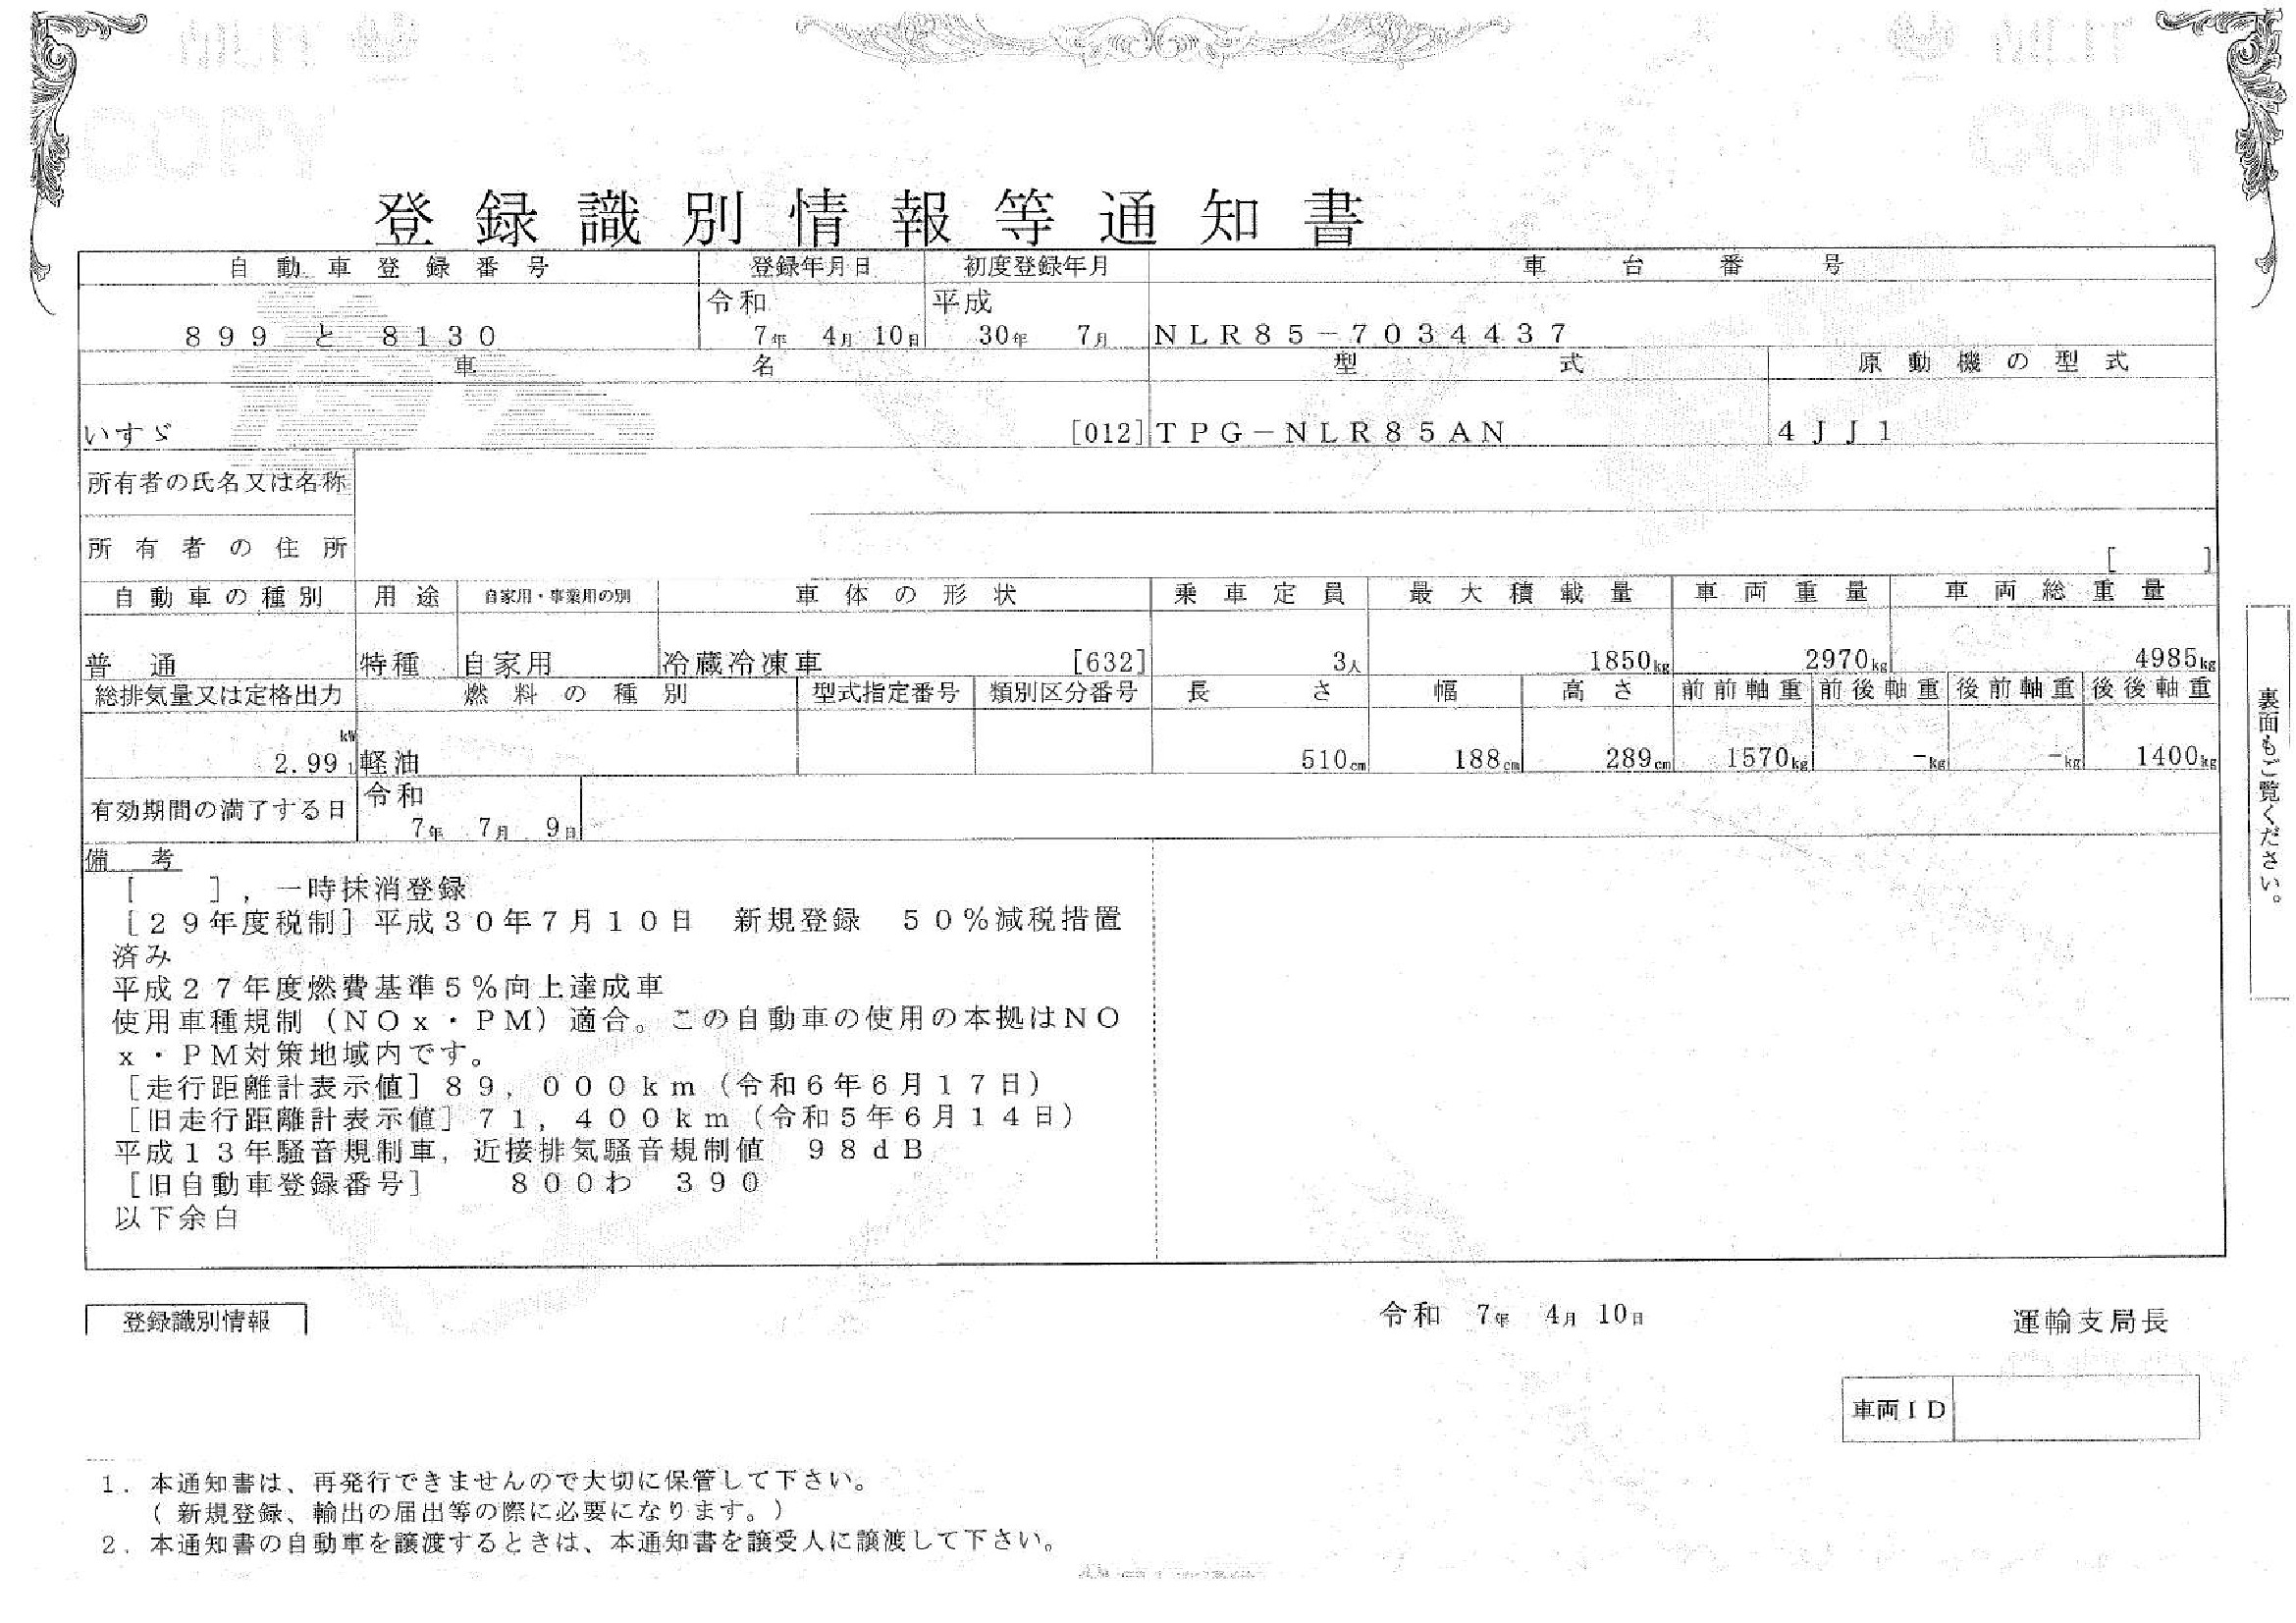 登録識別情報等通知書
自動車登録番号 登録年月日 初度登録年月 車台番号
令和 平成
899 と 8130 7年 4月 10日 30年 7月 NLR85-7034437
車名 型式 原動機の型式
いすゞ [012] TPG-NLR85AN 4JJ1
所有者の氏名又は名称
所有者の住所 [ ]
自動車の種別 用途 自家用・事業用の別 車体の形状 乗車定員 最大積載量 車両重量 車両総重量
普通 特種 自家用 冷蔵冷凍車 [632] 3人 1850kg 2970kg 4985kg
総排気量又は定格出力 燃料の種別 型式指定番号 類別区分番号 長さ 幅 高さ 前前軸重 前後軸重 後前軸重 後後軸重
kW
2.99 l 軽油 510cm 188cm 289cm 1570kg -kg -kg 1400kg
有効期間の満了する日 令和
7年 7月 9日
備考
[ ],一時抹消登録
[29年度税制]平成30年7月10日 新規登録 50%減税措置
済み
平成27年度燃費基準5%向上達成車
使用車種規制(NOx・PM)適合。この自動車の使用の本拠はNO
x・PM対策地域内です。
[走行距離計表示値]89,000km(令和6年6月17日)
[旧走行距離計表示値]71,400km(令和5年6月14日)
平成13年騒音規制車,近接排気騒音規制値 98dB
[旧自動車登録番号] 800わ 390
以下余白
裏面もご覧ください。
登録識別情報
令和 7年 4月 10日 運輸支局長
車両ID
1. 本通知書は、再発行できませんので大切に保管して下さい。
(新規登録、輸出の届出等の際に必要になります。)
2. 本通知書の自動車を譲渡するときは、本通知書を譲受人に譲渡して下さい。
COPY
COPY